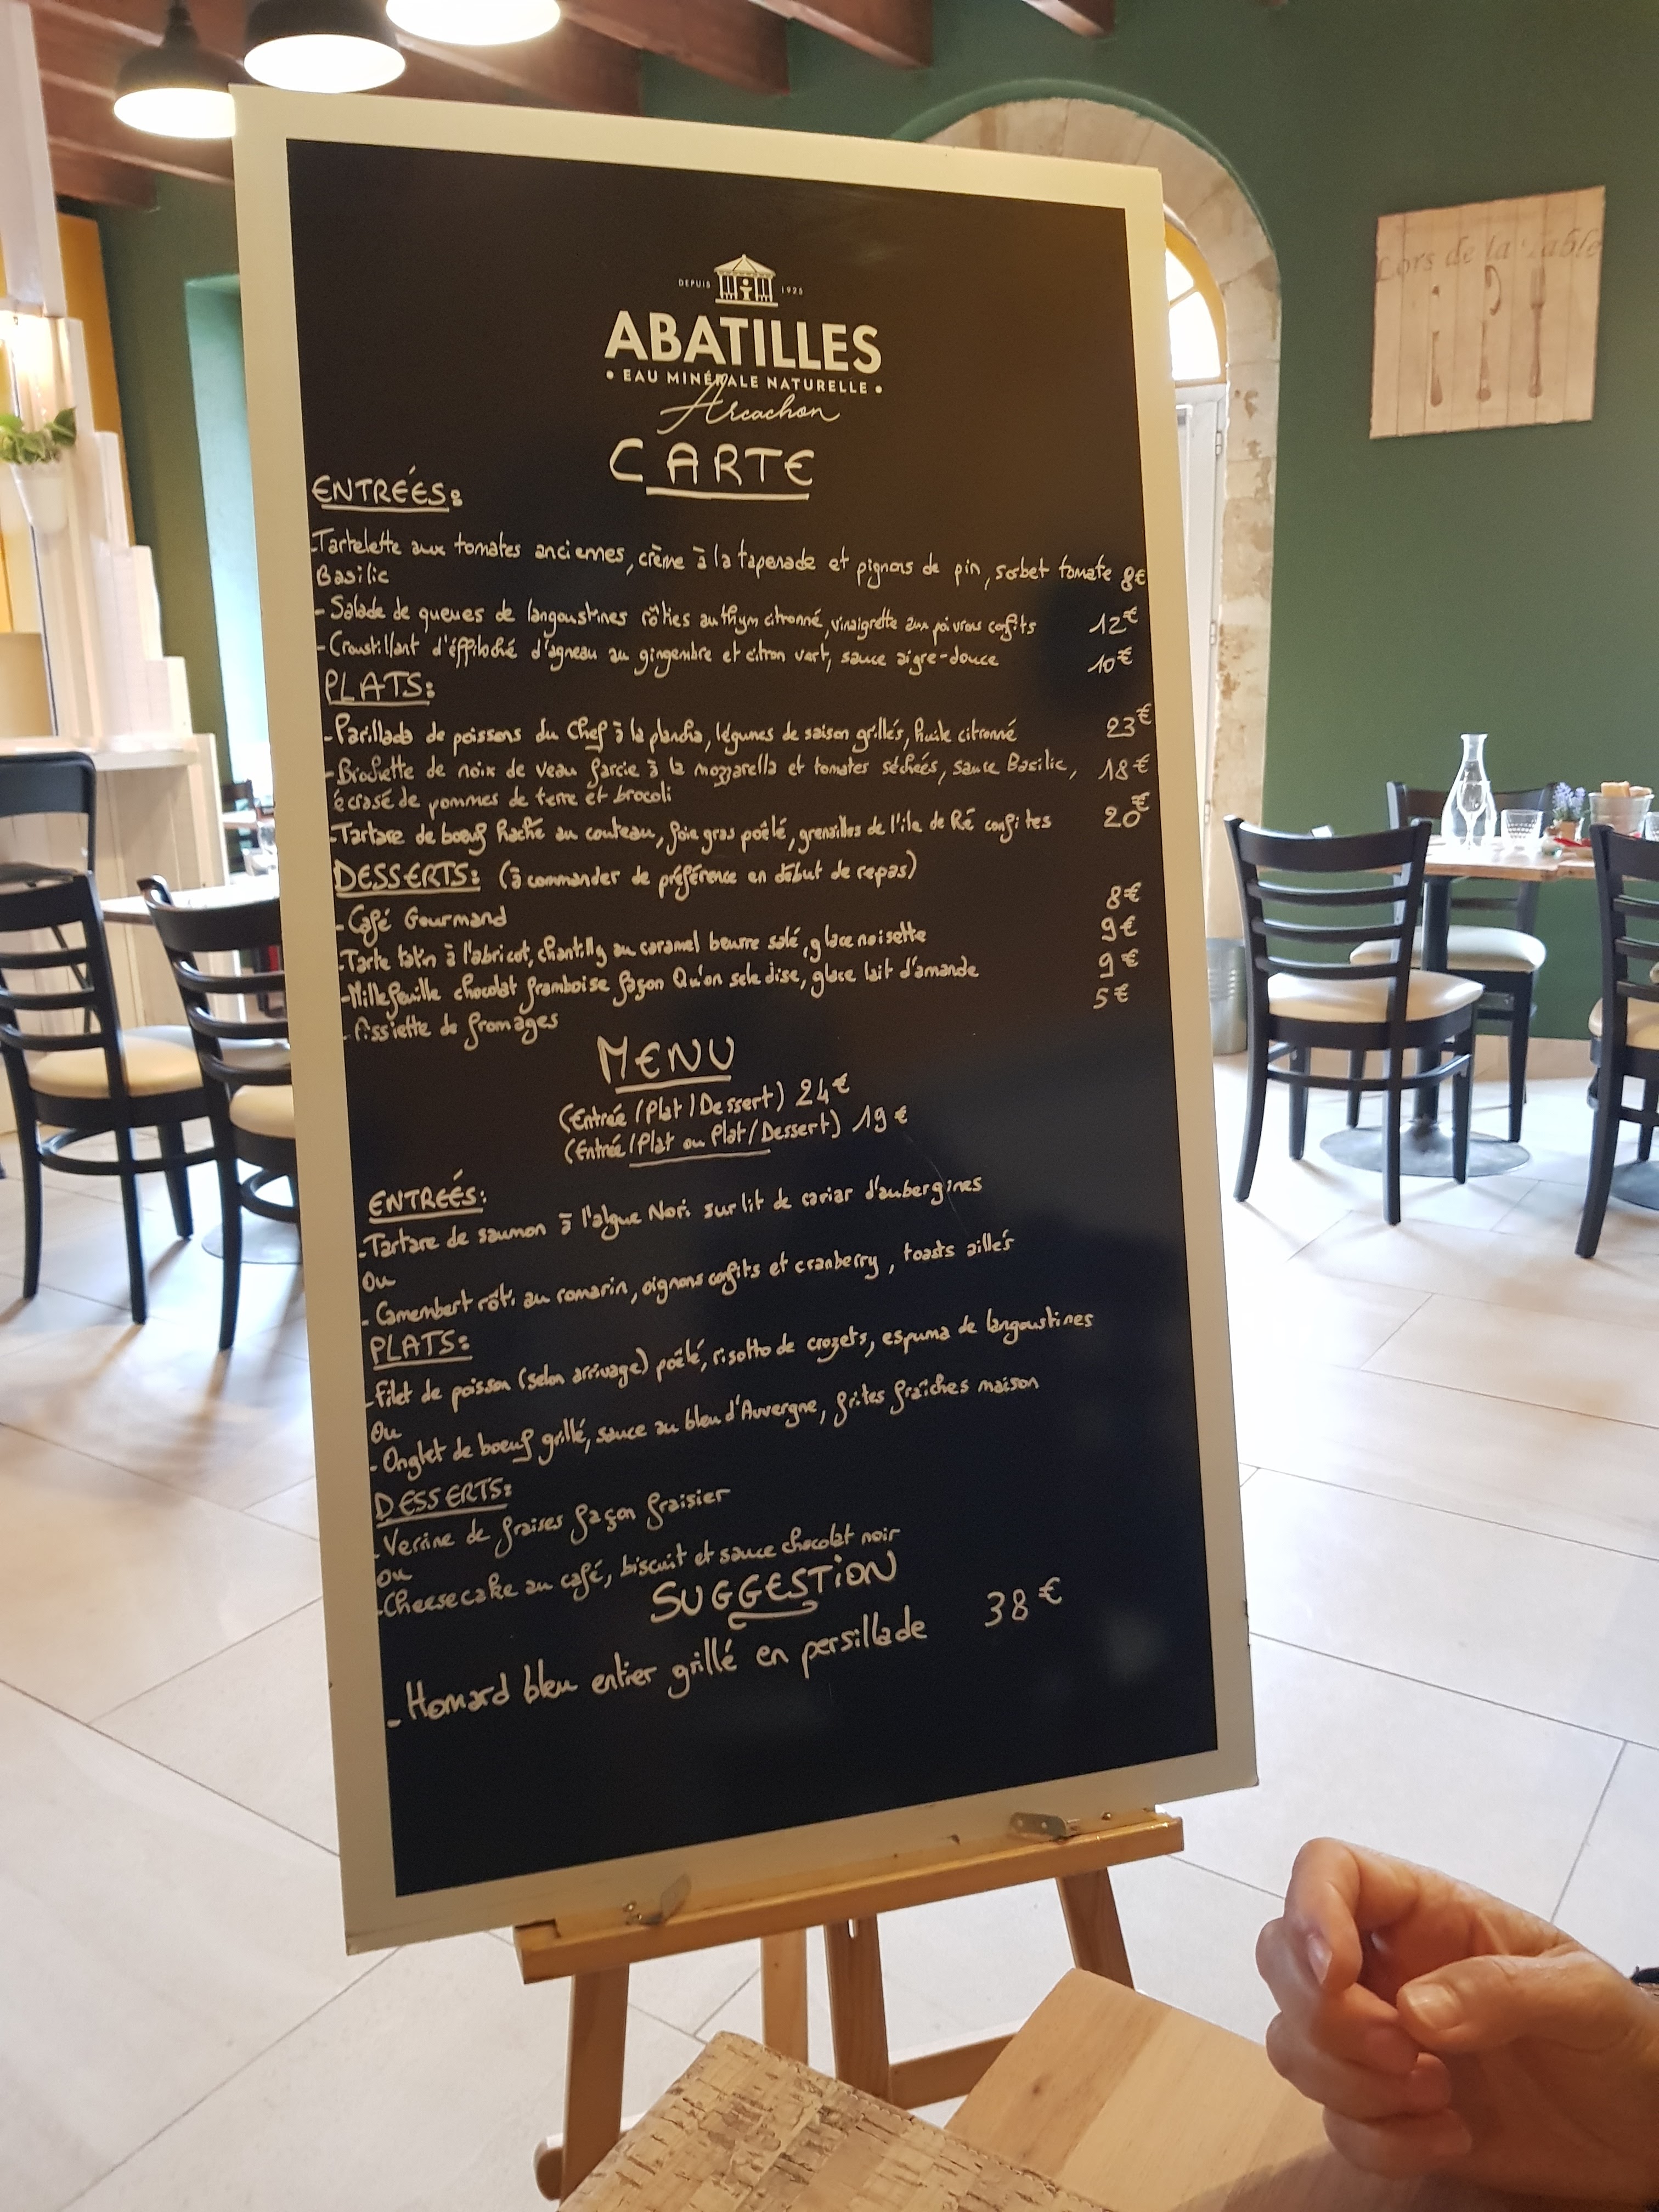 DEPUIS 1925
ABATILLES
• EAU MINÉRALE NATURELLE •
Arcachon
CARTE
ENTRÉES:
-Tartelette aux tomates anciennes, crème à la tapenade et pignons de pin, sorbet tomate 8€
Basilic
- Salade de queues de langoustines rôties au thym citronné, vinaigrette aux poivrons confits 12€
- Croustillant d'éffiloché d'agneau au gingembre et citron vert, sauce aigre-douce 10€
PLATS:
-Parillada de poissons du Chef à la plancha, légumes de saison grillés, huile citronné 23€
-Brochette de noix de veau farcie à la mozzarella et tomates séchées, sauce Basilic, 18€
écrasé de pommes de terre et brocoli
-Tartare de boeuf haché au couteau, foie gras poêlé, grenailles de l'île de Ré confites 20€
DESSERTS: (à commander de préférence en début de repas)
-Café Gourmand 8€
-Tarte tatin à l'abricot, chantilly au caramel beurre salé, glace noisette 9€
-Millefeuille chocolat framboise façon Qu'on se le dise, glace lait d'amande 9€
-Assiette de fromages 5€
MENU
(Entrée/Plat/Dessert) 24€
(Entrée/Plat ou Plat/Dessert) 19€
ENTREÉS:
-Tartare de saumon à l'algue Nori sur lit de caviar d'aubergines
Ou
- Camembert rôti au romarin, oignons confits et cranberry, toasts aillés
PLATS:
-Filet de poisson (selon arrivage) poêlé, risotto de crozets, espuma de langoustines
Ou
- Onglet de boeuf grillé, sauce au bleu d'Auvergne, frites fraîches maison
DESSERTS:
-Verrine de fraises façon fraisier
ou
-Cheesecake au café, biscuit et sauce chocolat noir
SUGGESTION
- Homard bleu entier grillé en persillade 38€
Lors de la Table